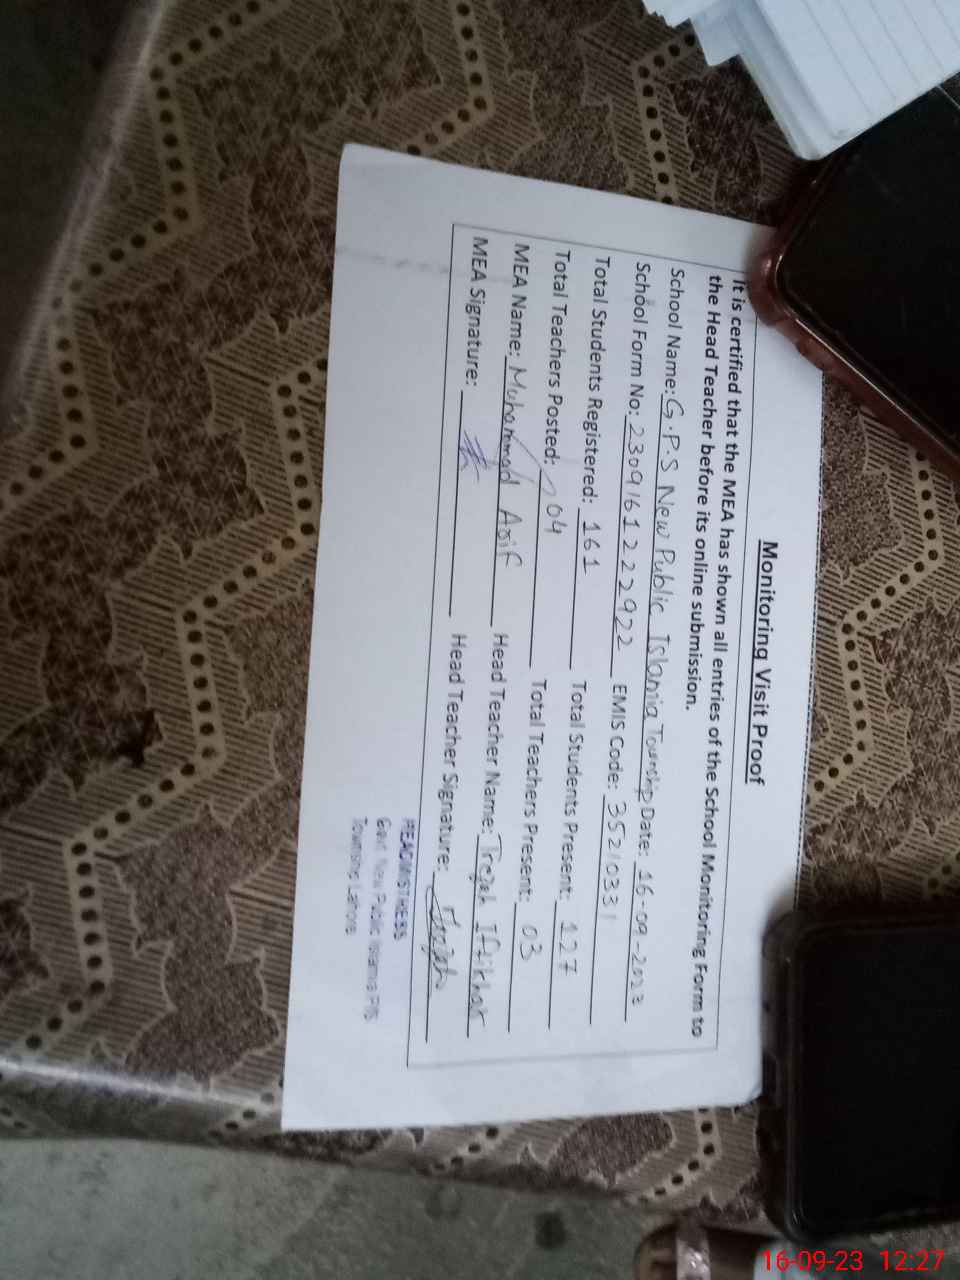 Monitoring Visit Proof
It is certified that the MEA has shown all entries of the School Monitoring Form to
the Head Teacher before its online submission.
School Name: G.P.S New Public Islamia Township Date: 16-09-2023
School Form No: 2309161222922 EMIS Code: 35210331
Total Students Registered: 161 Total Students Present: 127
Total Teachers Posted: 04 Total Teachers Present: 03
MEA Name: Muhammad Asif Head Teacher Name: Irejah Iftikhar
MEA Signature: Head Teacher Signature: Irejah
HEADMISTRESS
Govt. New Public Islamia P/S
Township Lahore
16-09-23 12:27